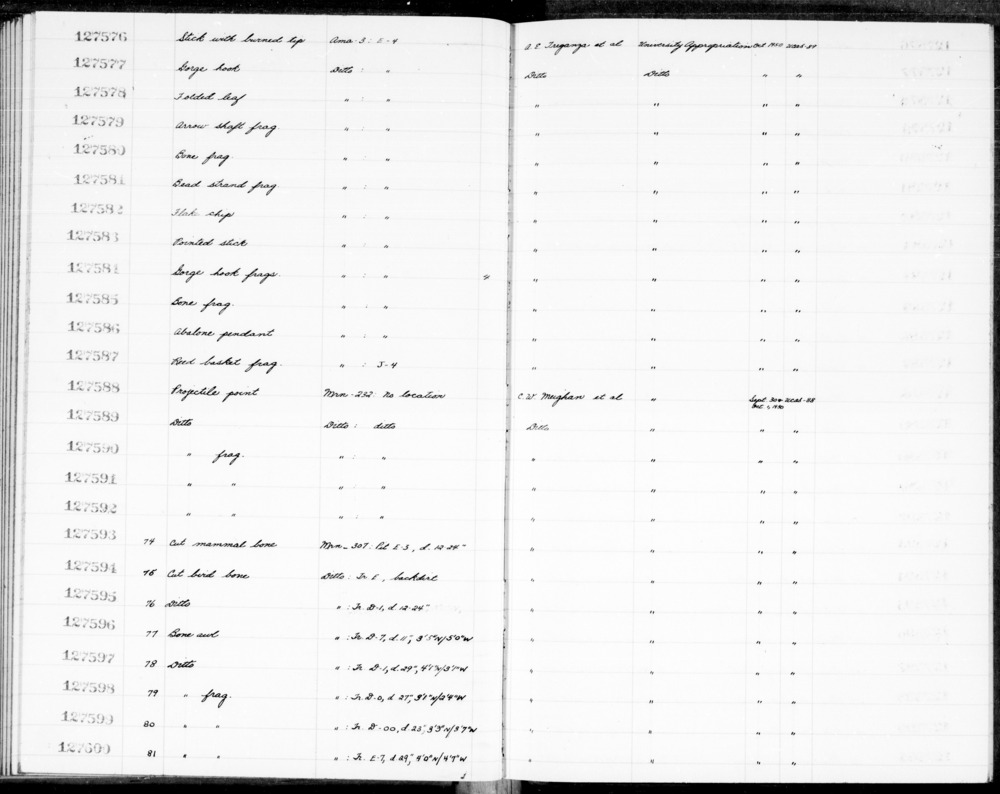 127576 Stick with burned tip Ama-3: E-4 A. E. Treganza et al University Appropriation Oct. 1950 UCAS-89
127577 Gorge hook Ditto: " Ditto Ditto " "
127578 Folded leaf " : " " " " "
127579 Arrow shaft frag. " : " " " " "
127580 Bone frag. " : " " " " "
127581 Bead strand frag " : " " " " "
127582 chip " : " " " " "
127583 Pointed stick " : " " " " "
127584 Gorge hook frags. " : " 4 " " " "
127585 Bone frag. " : " " " " "
127586 Abalone pendant " : " " " " "
127587 Reed basket frag. " : J-4 " " " "
127588 Projectile point Mrn-232: No location C. W. Meighan et al " Sept. 30 & Oct. 1, 1950 UCAS-88
127589 Ditto Ditto: ditto Ditto " " "
127590 " frag. " : " " " " "
127591 " " " : " " " " "
127592 " " " : " " " " "
127593 74 Cut mammal bone Mrn-307: Pit E-3, d. 12-24" " " " "
127594 75 Cut bird bone Ditto: Tr. E, backdirt " " " "
127595 76 Ditto " : Tr. D-1, d. 12-24" " " " "
127596 77 Bone awl " : Tr. D-7, d. 11", 3'5"N/5'0"W " " " "
127597 78 Ditto " : Tr. D-1, d. 29", 4'1"N/3'1"W " " " "
127598 79 " frag. " : Tr. D-0, d. 27", 3'1"N/2'4"W " " " "
127599 80 " " " : Tr. D-00, d. 25", 3'3"N/3'7"W " " " "
127600 81 " " " : Tr. E-7, d. 29", 4'0"N/4'7"W " " " "